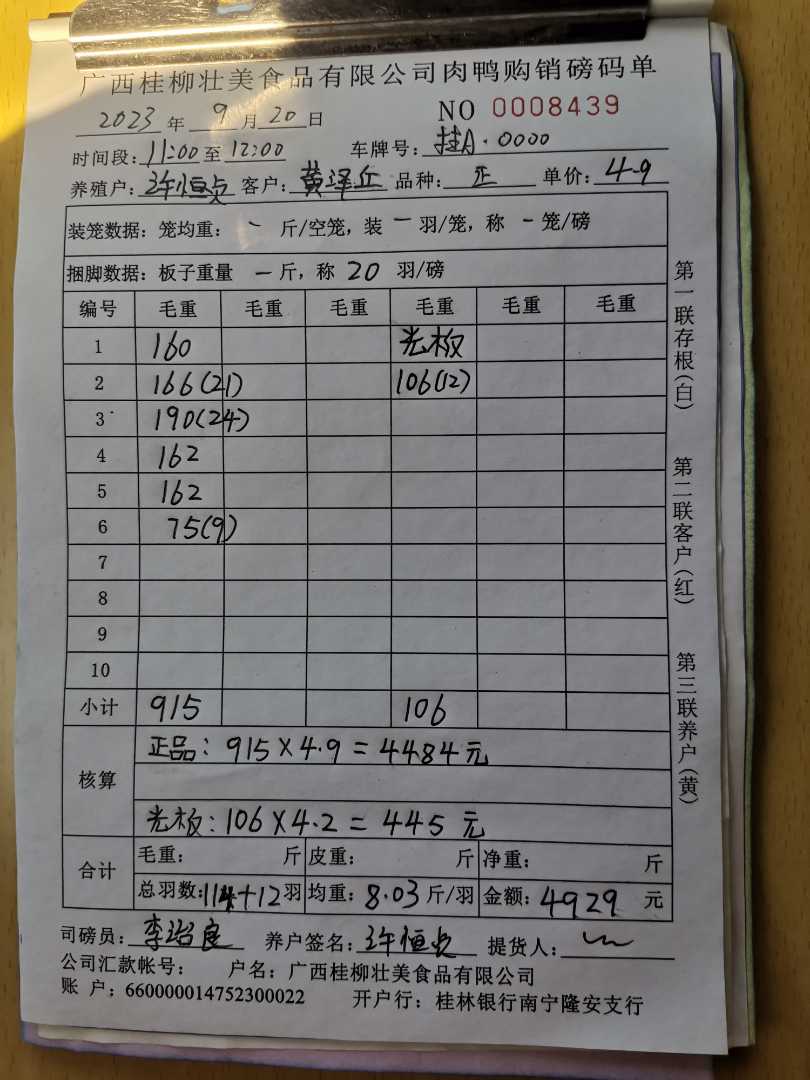 广西桂柳壮美食品有限公司肉鸭购销磅码单
2023 年 9 月 20 日 NO 0008439
时间段: 11:00 至 12:00 车牌号: 桂A·0000
养殖户: 许恒贞 客户: 黄泽丘 品种: 正 单价: 4.9
装笼数据: 笼均重: - 斤/空笼, 装 - 羽/笼, 称 - 笼/磅
捆脚数据: 板子重量 - 斤, 称 20 羽/磅
编号 毛重 毛重 毛重 毛重 毛重 毛重
1 160 光板
2 166(21) 106(12)
3 190(24)
4 162
5 162
6 75(9)
7
8
9
10
小计 915 106
核算 正品: 915×4.9=4484元
光板: 106×4.2=445元
合计 毛重: 斤 皮重: 斤 净重: 斤
总羽数: 114+12 羽 均重: 8.03 斤/羽 金额: 4929 元
司磅员: 李绍良 养户签名: 许恒贞 提货人:
公司汇款帐号: 户名: 广西桂柳壮美食品有限公司
账 户; 660000014752300022 开户行: 桂林银行南宁隆安支行
第一联存根(白)
第二联客户(红)
第三联养户(黄)